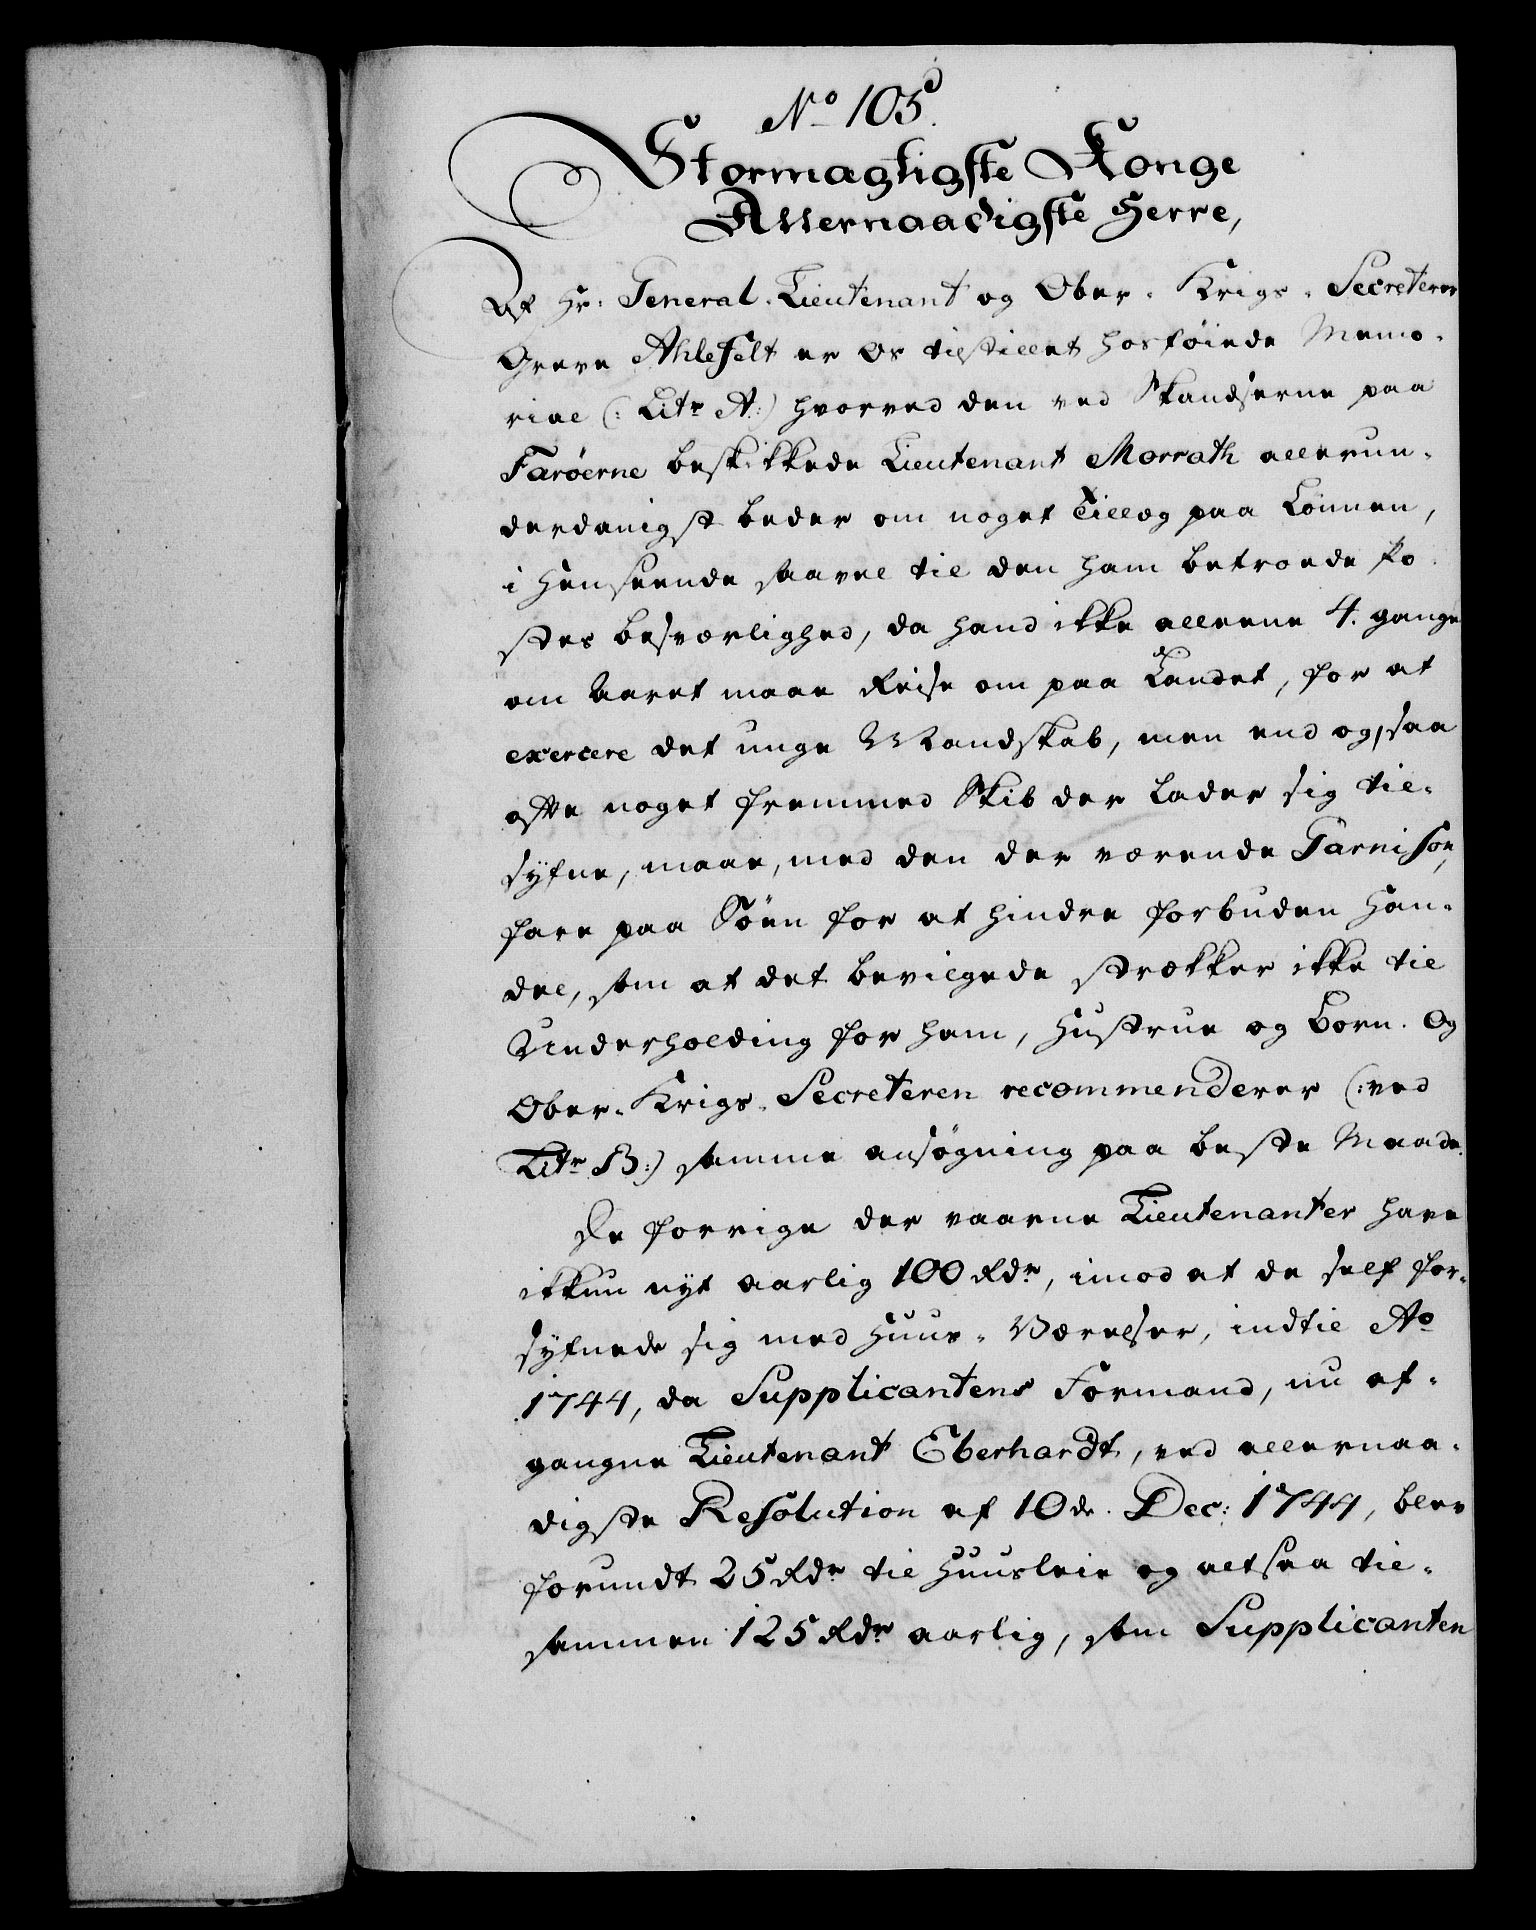 No 105.
Stormægtigste Konge
Allernaadigste Herre,
Af Hr: General-Lieutenant og Ober-Krigs-Secreterer
Greve Ahlefelt er Os tilstillet hosføiede Memo-
rial (: Litr A:) hvorved den ved Skandserne paa
Farøerne beskikkede Lieutenant Morrath allerun-
derdanigst beder om noget Tillæg paa Lønnen,
i Henseende saavel til den ham betroede Po-
stes besværlighed, da hand ikke alleene 4. gange
om Aaret maae Reise om paa Landet, for at
exercere det unge Mandskab, men end og, saa
ofte noget fremmed Skib der lader sig til-
syfne, maae, med den der værende Garnison,
fare paa Søen for at hindre forbuden Han-
del, som at det bevilgede strækker ikke til
Underholding for ham, Hustrue og Børn. Og
Ober-Krigs-Secreteren recommenderer (: ved
Litr B:) samme ansøgning paa beste Maade.
De forrige der vaarne Lieutenanter have
ikkun nyt aarlig 100 Rdr, imod at de self for-
syfnede sig med Huus-Værelser, indtil Ao
1744, da Supplicantens Formand, nu af-
gangne Lieutenant Eberhardt, ved allernaa-
digste Resolution af 10de Dec: 1744, blev
forundt 25 Rdr til Huusleie og altsaa til-
sammen 125 Rdr aarlig, som Supplicanten